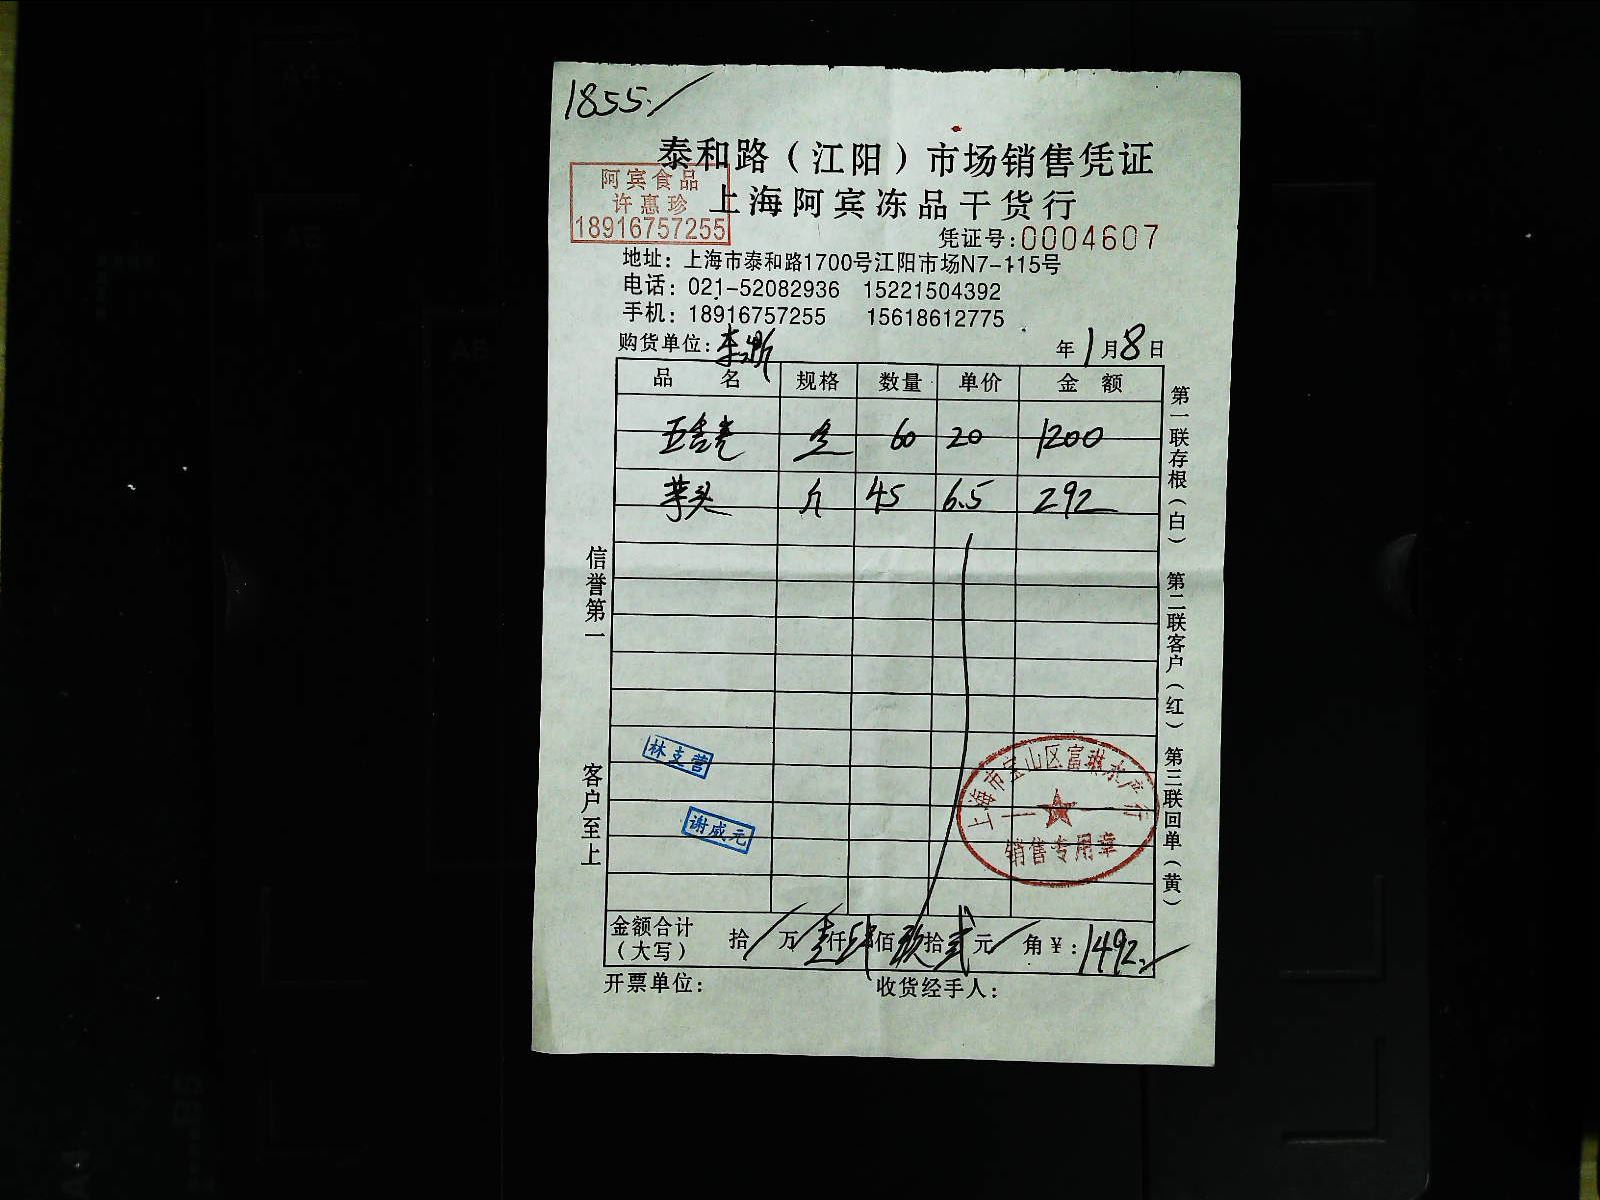 1855.
泰和路（江阳）市场销售凭证
阿宾食品
许惠珍
18916757255
上海阿宾冻品干货行
凭证号:0004607
地址：上海市泰和路1700号江阳市场N7-115号
电话：021-52082936 15221504392
手机：18916757255 15618612775
购货单位: 年1月8日
品 名 规格 数量 单价 金 额
60 20 1200
芋头 斤 45 6.5 292
第一联存根（白） 第二联客户（红） 第三联回单（黄）
信誉第一 客户至上
林支营
谢咸元
上海市宝山区富琳水产行
销售专用章
金额合计（大写） 拾/万壹仟肆佰玖拾贰元/角￥:1492.
开票单位: 收货经手人: